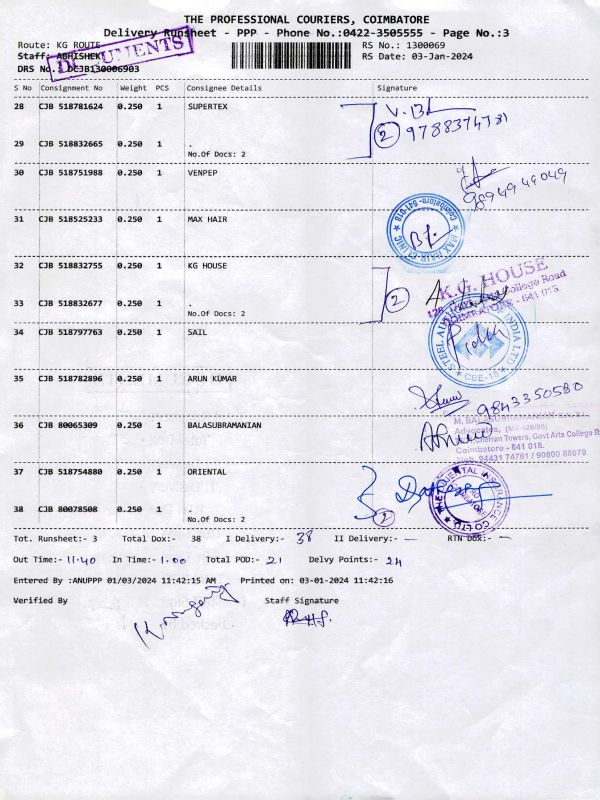 THE PROFESSIONAL COURIERS, COIMBATORE
Delivery Runsheet - PPP - Phone No.:0422-3505555 - Page No.:3
Route: KG ROUTE RS No.: 1300069
DOCUMENTS
Staff: ABHISHEK RS Date: 03-Jan-2024
DRS No.: DCJB130006903
S No Consignment No Weight PCS Consignee Details Signature
28 CJB 518781624 0.250 1 SUPERTEX
2 9788374731
29 CJB 518832665 0.250 1 .
No.Of Docs: 2
30 CJB 518751988 0.250 1 VENPEP
9894949049
31 CJB 518525233 0.250 1 MAX HAIR
★ MAX HAIR CLINIC ★ Coimbatore - 641 018
32 CJB 518832755 0.250 1 KG HOUSE
K.G. HOUSE
College Road
COIMBATORE - 641 018
33 CJB 518832677 0.250 1 .
2
No.Of Docs: 2
34 CJB 518797763 0.250 1 SAIL
STEEL AUTHORITY OF INDIA LTD
★ CBE-18 ★
35 CJB 518782896 0.250 1 ARUN KUMAR
9843350580
36 CJB 80065309 0.250 1 BALASUBRAMANIAN
M. BALASUBRAMANIAN
Advocates, (MS-426/86)
Cheran Towers, Govt Arts College R
Coimbatore - 641 018.
Mob. 94431 74761 / 90800 88079
37 CJB 518754880 0.250 1 ORIENTAL
THE ORIENTAL INSURANCE CO LTD
38 CJB 80078508 0.250 1 .
No.Of Docs: 2
2
Tot. Runsheet:- 3 Total Dox:- 38 I Delivery:- 38 II Delivery:- — RTN Dox:- —
Out Time:- 11.40 In Time:- 1.00 Total POD:- 21 Delvy Points:- 24
Entered By :ANUPPP 01/03/2024 11:42:15 AM Printed on: 03-01-2024 11:42:16
Verified By Staff Signature